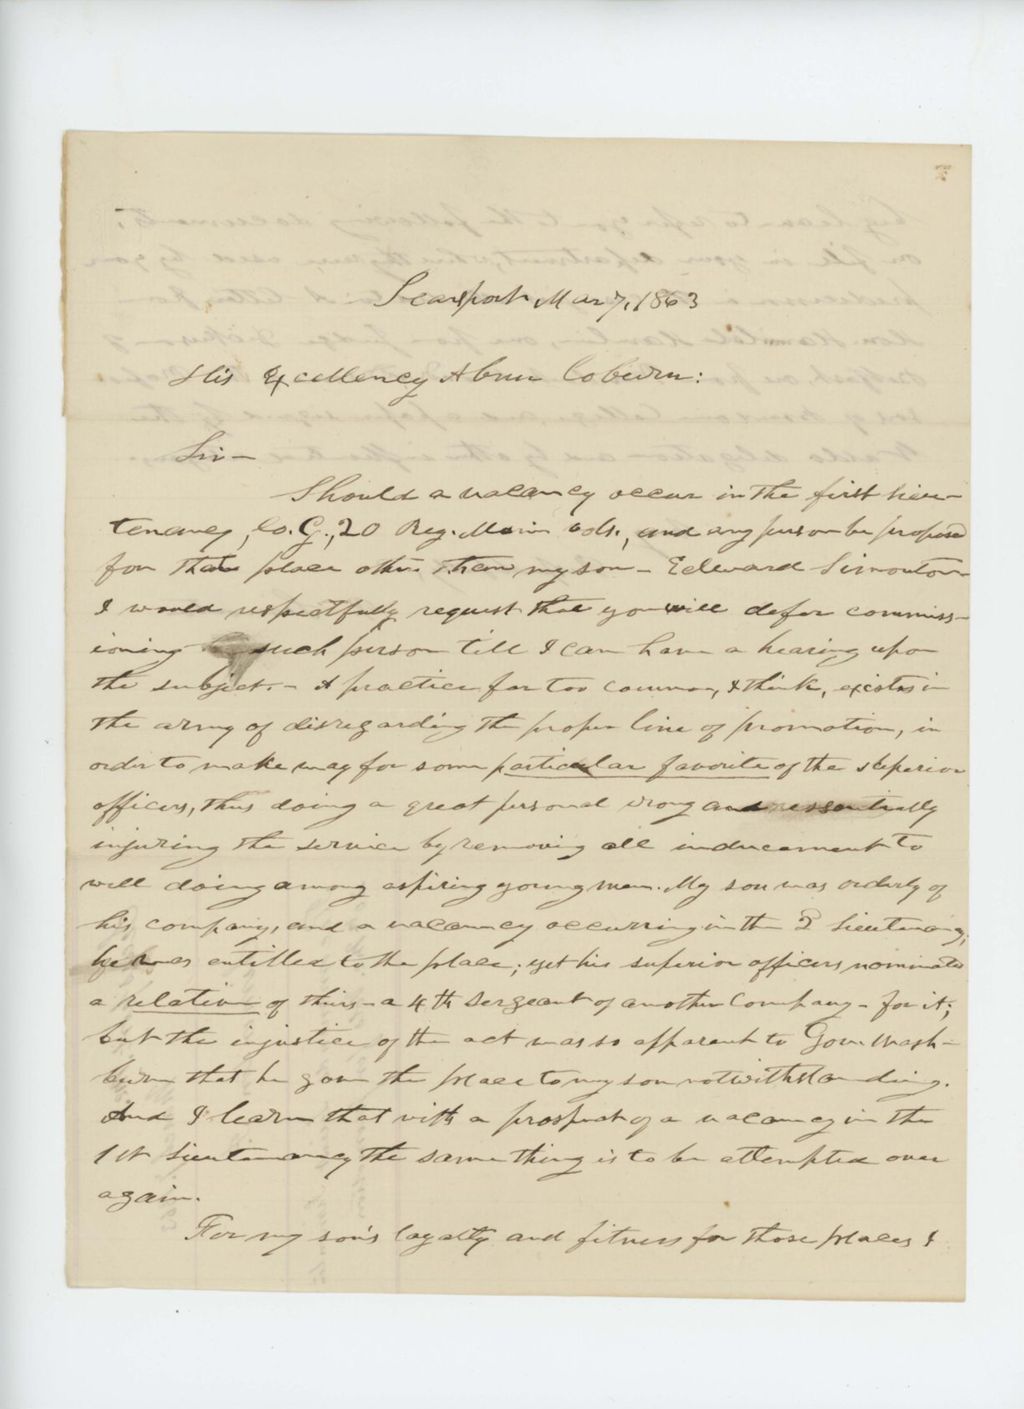 Searsport Mar 7, 1863
His Excellency Abner Coburn:
Sir—
Should a vacancy occur in the first lieu-
tenancy, Co. G., 20 Reg. Maine Vols., and any person be proposed
for that place other than my son - Edward Simonton
I would respectfully request that you will defer commiss-
ioning such person till I can have a hearing upon
the subject. - A practice far too common, I think, exists in
the army of disregarding the proper line of promotion, in
order to make way for some particular favorite of the superior
officers, thus doing a great personal wrong and essentially
injuring the service by removing all inducement to
well doing among aspiring young men. My son was orderly of
his company, and a vacancy occurring in the 2 Lieutenancy,
he was entitled to the place; yet his superior officers nominated
a relative of theirs - a 4th Sergeant of another Company - for it;
but the injustice of the act was so apparent to Gov. Wash-
burn that he gave the place to my son notwithstanding.
And I learn that with a prospect of a vacancy in the
1st Lieutenancy the same thing is to be attempted over
again.
For my son's loyalty and fitness for those places I